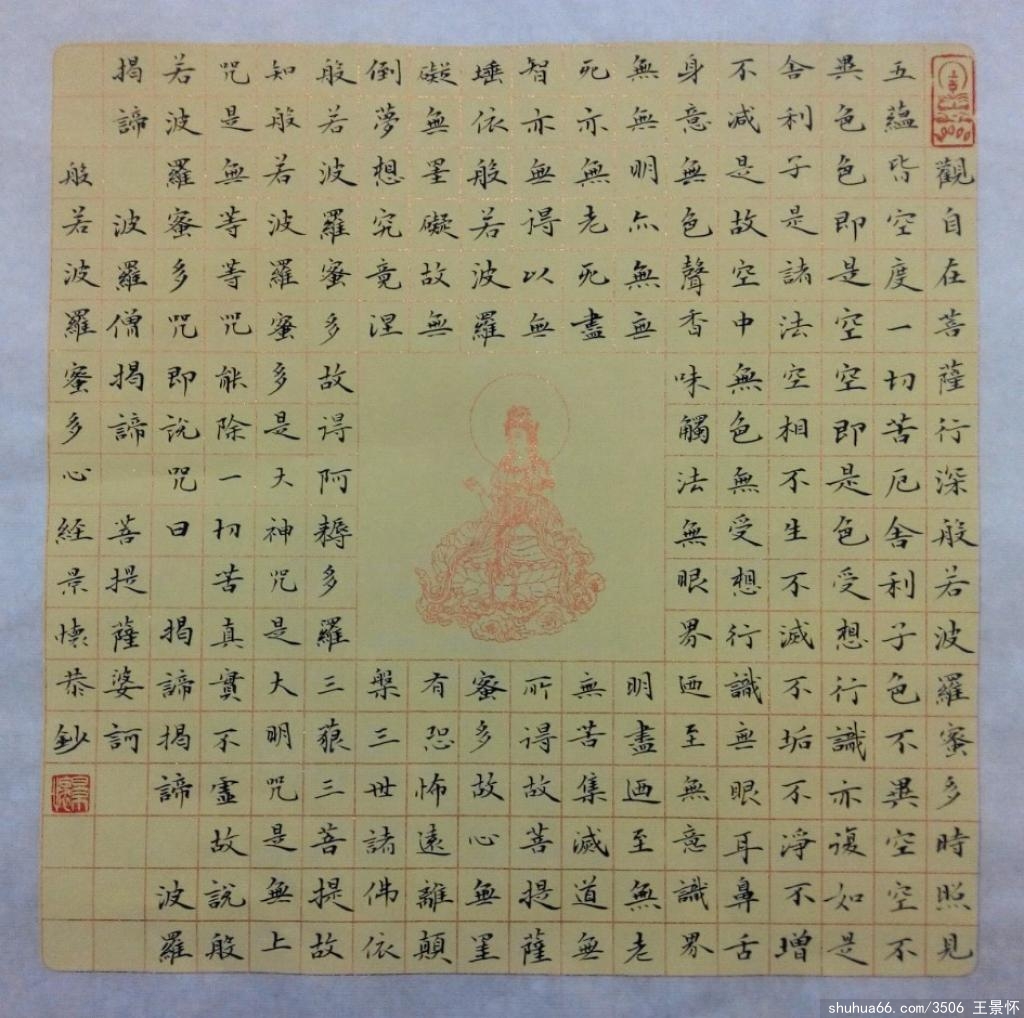 觀自在菩薩行深般若波羅蜜多時照見
五蘊皆空度一切苦厄舍利子色不異空空不
異色色即是空空即是色受想行識亦復如是
舍利子是諸法空相不生不滅不垢不淨不增
不減是故空中無色無受想行識無眼耳鼻舌
身意無色聲香味觸法無眼界迺至無意識界
無無明亦無無明盡迺至無老
死亦無老死盡無苦集滅道無
智亦無得以無所得故菩提薩
埵依般若波羅蜜多故心無罣
礙無罣礙故無有恐怖遠離顛
倒夢想究竟涅槃三世諸佛依
般若波羅蜜多故得阿耨多羅三藐三菩提故
知般若波羅蜜多是大神咒是大明咒是無上
咒是無等等咒能除一切苦真實不虛故說般
若波羅蜜多咒即說咒曰 揭諦揭諦 波羅
揭諦 波羅僧揭諦 菩提薩婆訶
般若波羅蜜多心経景懷恭鈔
shuhua66.com/3506 王景怀